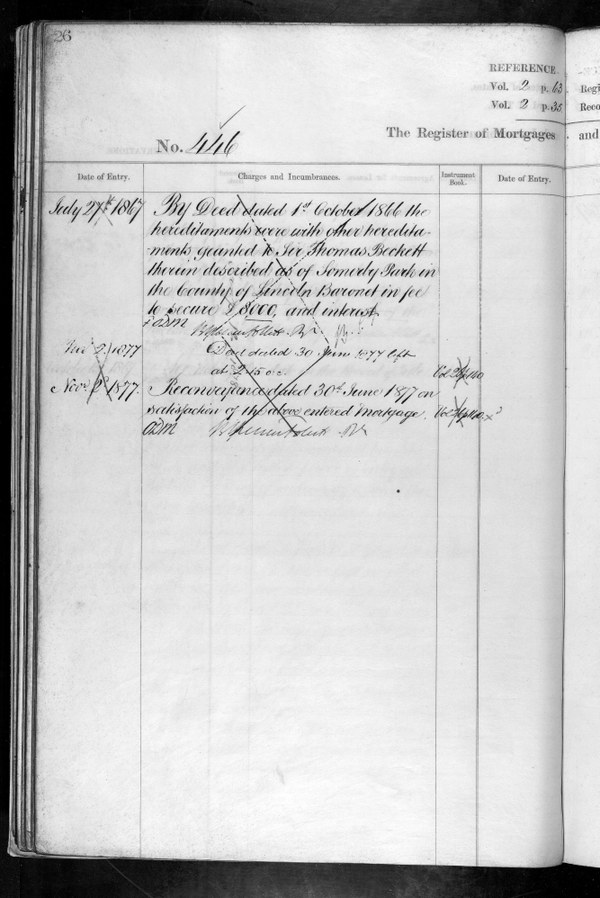 26
REFERENCE
Vol. 2 p. 63. Regi
Vol. 2 p. 35 Reco
No. 446
The Register of Mortgages and
Date of Entry. Charges and Incumbrances. Instrument Book. Date of Entry.
July 27th 1867 By Deed dated 1st October 1866 the
hereditaments were with other heredita-
ments granted to Sir Thomas Beckett
therein described as of Somerby Park in
the County of Lincoln Baronet in fee
to secure £8000, and interest
Nov 2 1877 Deed dated 30 June 1877 left
at 2.15 o.c. Vol 2 p 110
Nov 2d 1877. Reconveyance dated 30th June 1877 on
satisfaction of the above entered Mortgage. Vol 2 p 110